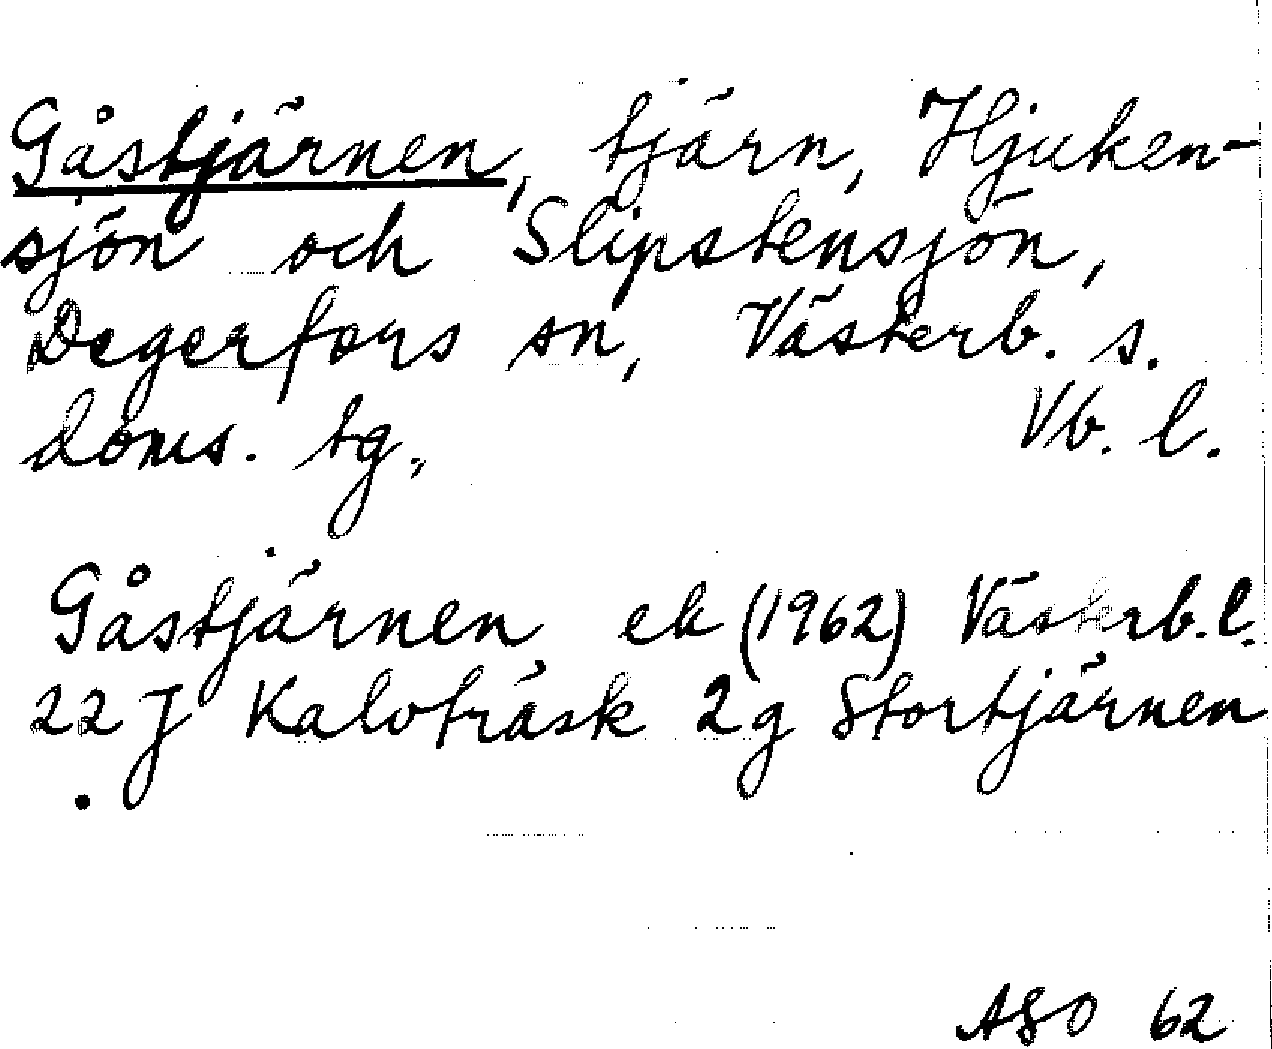 Gåstjärnen, tjärn, Hjuken-
sjön och Slipstensjön,
Degerfors sn, Västerb. s.
doms. tg., Vb. l.
Gåstjärnen ek (1962) Västerb. l.
22 J Kalvträsk 2g Stortjärnen
ASO 62